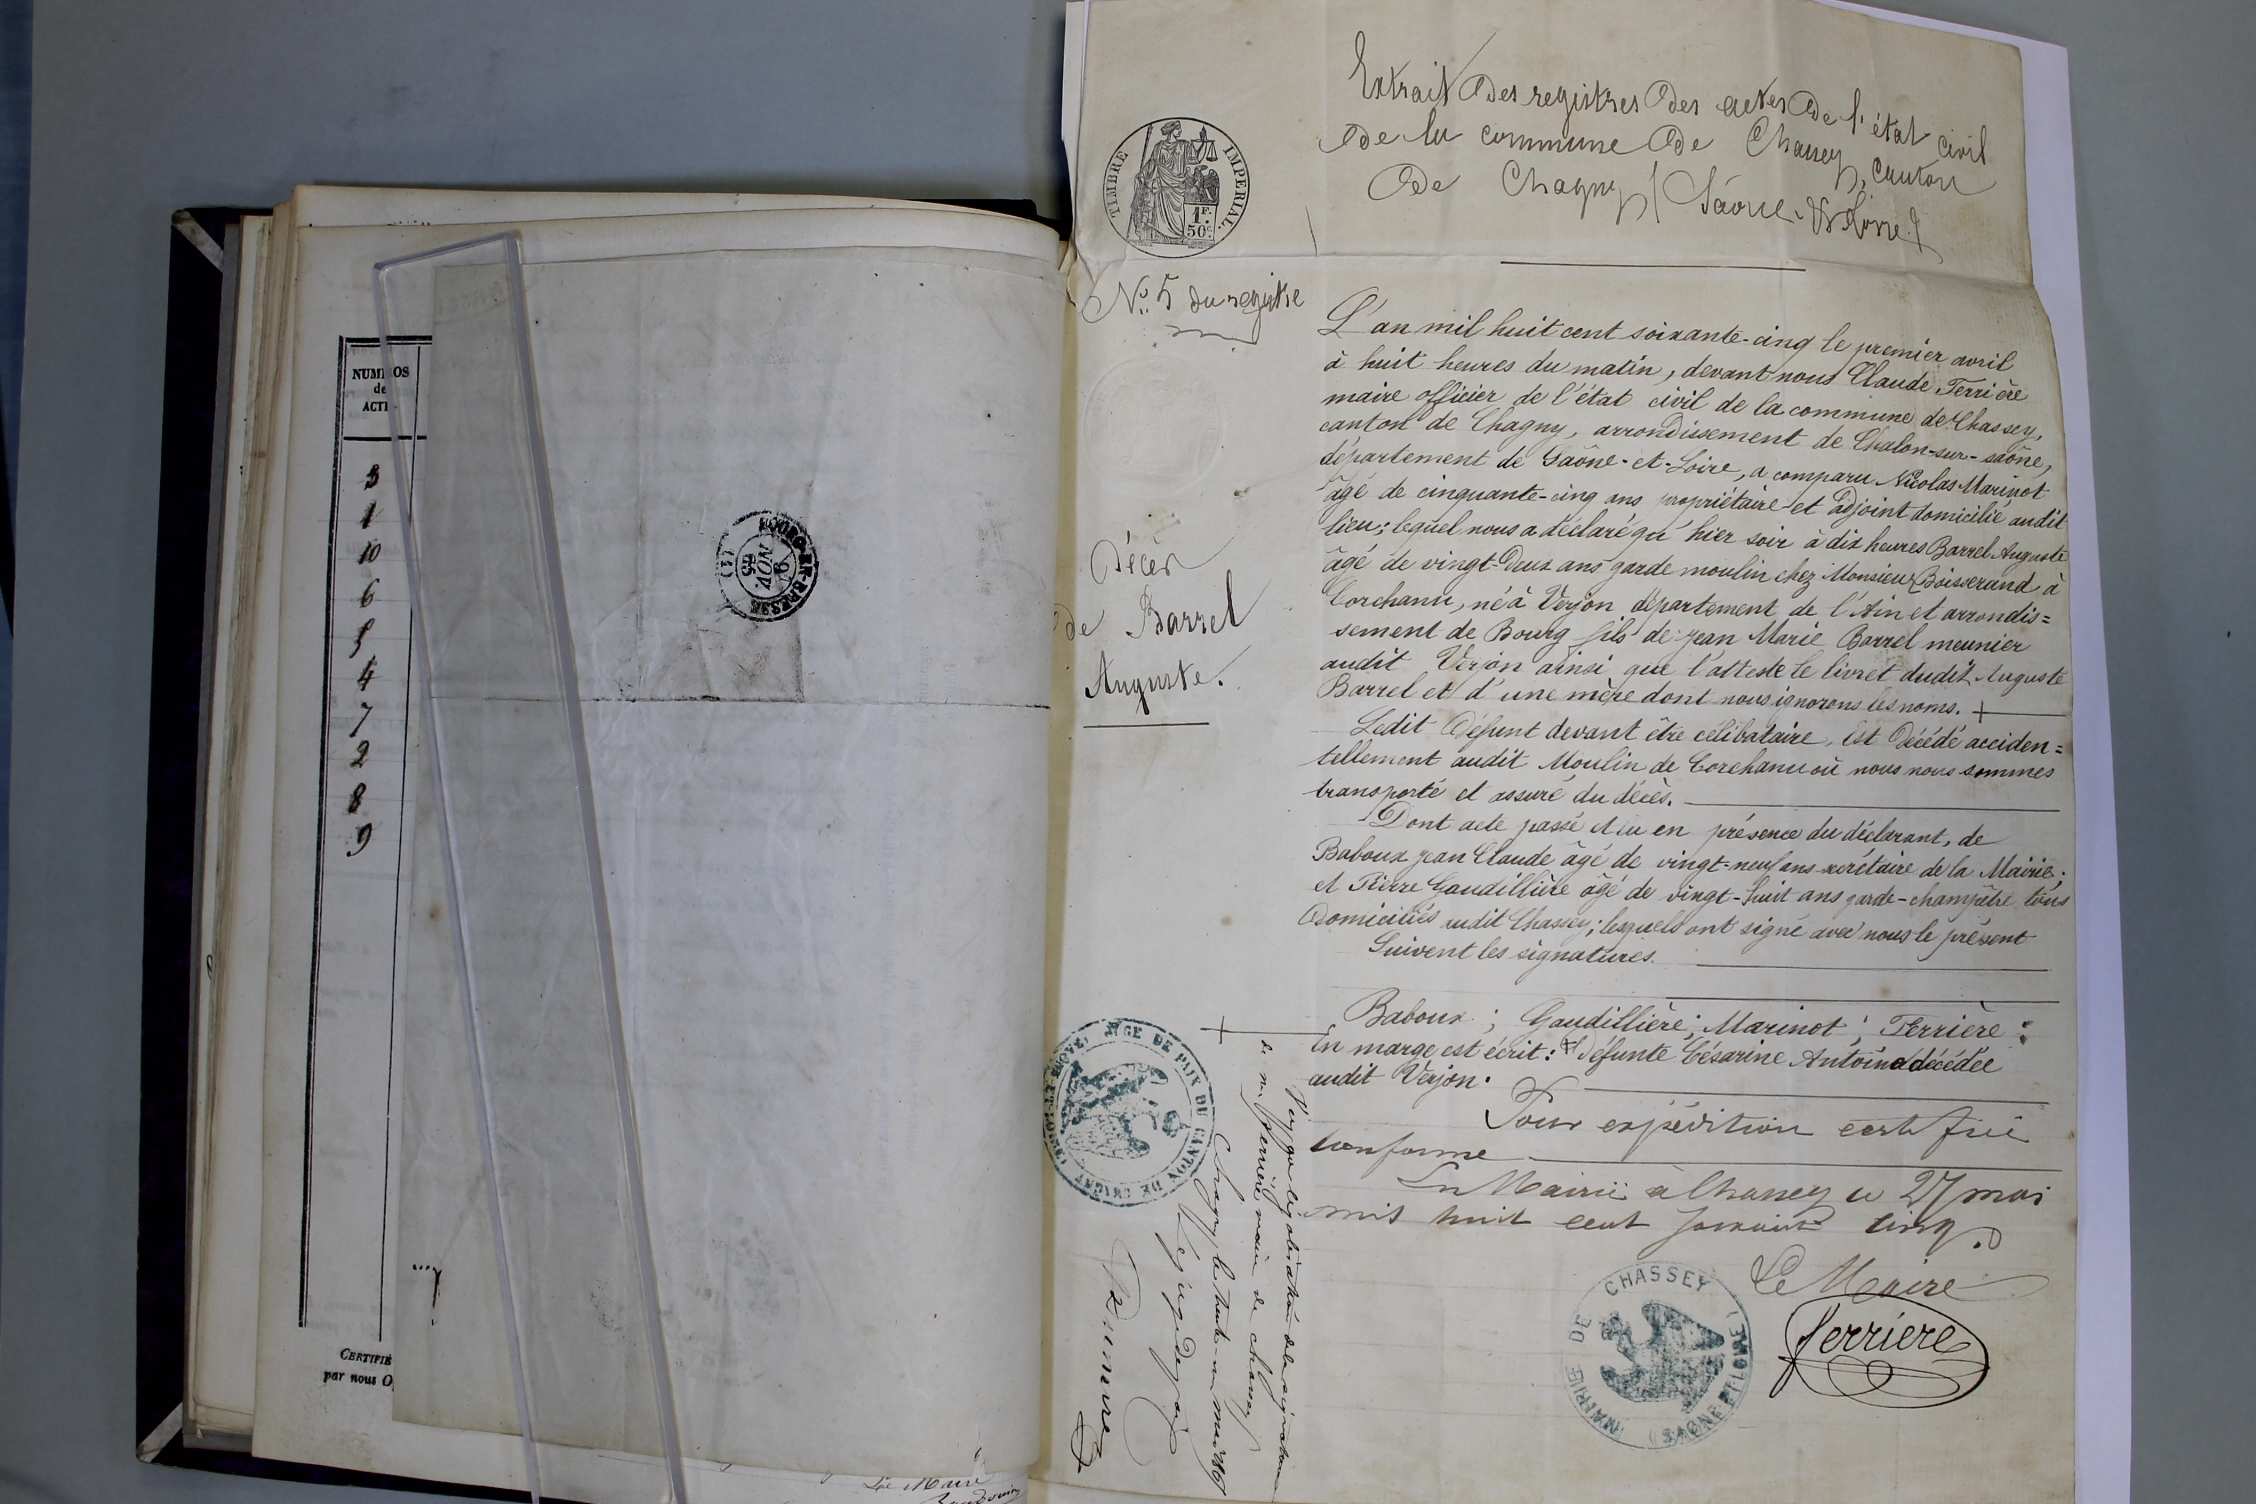 NUM OS
de
ACT
3
1
10
6
5
4
7
2
8
9
CERTIFIÉ
par nous O
BOURG-EN-BRESSE
6
NOV.
65
Le Maire
TIMBRE IMPERIAL.
1F.
50c.
Extrait des registres des actes de l'état civil
de la commune de Chassey, canton
de Chagny (Saône-et-Loire)
No. 5 du registre
Décès
de Barrel
Auguste.
L'an mil huit cent soixante-cinq le premier avril
à huit heures du matin, devant nous Claude Ferrière
maire officier de l'état civil de la commune de Chassey,
canton de Chagny, arrondissement de Chalon-sur-saône,
département de Saône-et-Loire, a comparu Nicolas Marinot
âgé de cinquante-cinq ans propriétaire et adjoint domicilié audit
lieu; lequel nous a déclaré qu'hier soir à dix heures Barrel Auguste
âgé de vingt-deux ans garde moulin chez Monsieur Boisserand à
Corchanu, né à Verjon département de l'Ain et arrondis=
sement de Bourg fils de Jean Marie Barrel meunier
audit Verjon ainsi que l'atteste le livret dudit Auguste
Barrel et d'une mère dont nous ignorons les noms. +
Ledit défunt devant être célibataire, est décédé acciden=
tellement audit Moulin de Corchanu où nous nous sommes
transporté et assuré du décès.
Dont acte passé et lu en présence du déclarant, de
Baboux Jean Claude âgé de vingt-neuf ans secrétaire de la Mairie;
et Pierre Gaudillière âgé de vingt-huit ans garde-champêtre, tous
domiciliés audit Chassey; lesquels ont signé avec nous le présent
Suivent les signatures.
Baboux; Gaudillière; Marinot; Ferrière:
En marge est écrit: + défunte Césarine Antoine décédée
audit Verjon.
Pour expédition certifiée
conforme
En Mairie à Chassey le 27 mai
mil huit cent soixante cinq.
Le Maire
Ferriere
MAIRIE DE CHASSEY (SAONE ET LOIRE)
JUGE DE PAIX DU CANTON DE CHAGNY
+
Vu pour légalisation de la signature
de mr ferrière, maire de chassey
Chagny, le trente-un mai 1865
Le juge de paix